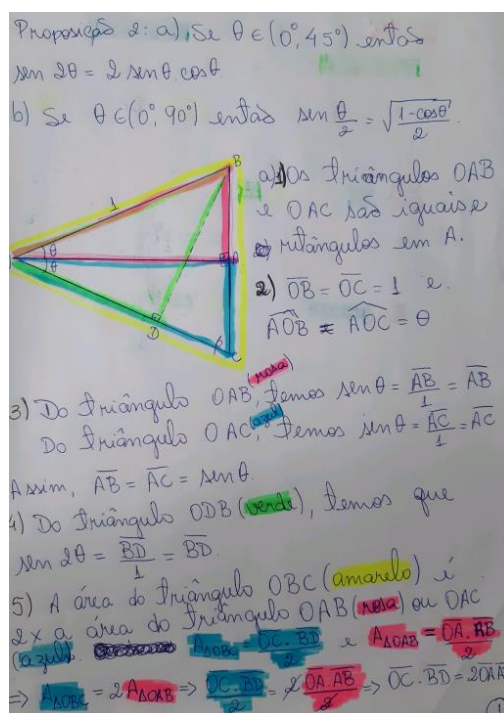 Proposição 2: a) Se θ ∈ (0°, 45°) então
sen 2θ = 2 senθ.cosθ
b) Se θ ∈ (0°, 90°) então sen θ/2 = √((1-cosθ)/2).
B
1
θ
θ
A
D
β
C
a) 1) Os triângulos OAB
e OAC são iguais e
retângulos em A.
2) OB = OC = 1 e
AOB = AOC = θ
3) Do triângulo OAB (rosa), temos senθ = AB/1 = AB
Do triângulo OAC (azul), temos senθ = AC/1 = AC
Assim, AB = AC = senθ.
4) Do triângulo ODB (verde), temos que
sen 2θ = BD/1 = BD.
5) A área do triângulo OBC (amarelo) é
2 x a área do triângulo OAB (rosa) ou OAC
(azul). A△OBC = OC.BD/2 e A△OAB = OA.AB/2
=> A△OBC = 2A△OAB => OC.BD/2 = 2 OA.AB/2 => OC.BD = 2OA